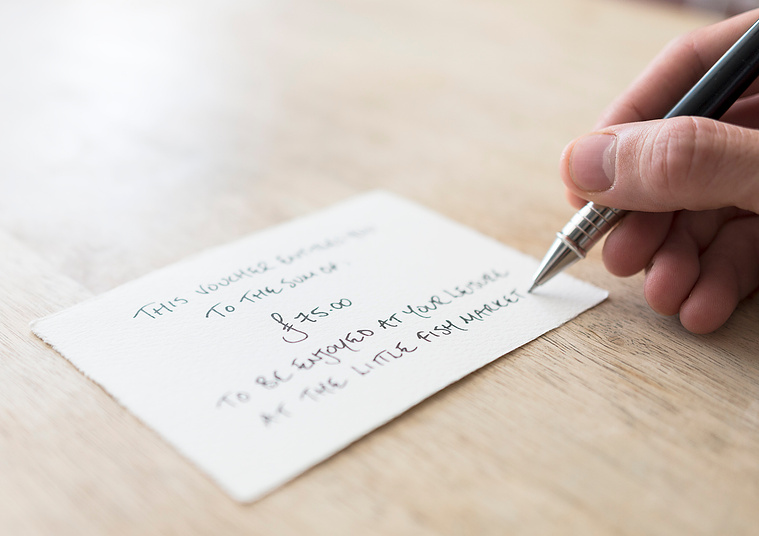 THIS VOUCHER ENTITLES YOU
TO THE SUM OF.
£75.00
TO BE ENJOYED AT YOUR LEISURE
AT THE LITTLE FISH MARKET